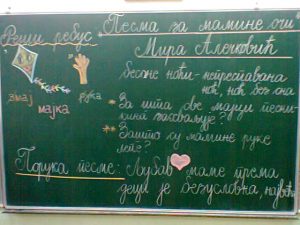 Реши ребус
Песма за мамине очи
Мира Алечковић
змај
мајка
рука
бесане ноћи - непреспавана
ноћ, ноћ без сна
* За шта све мајци песни-
киња захваљује?
* Зашто су мамине руке
лепе?
Порука песме: Љубав маме према
деци је безусловна, највећа